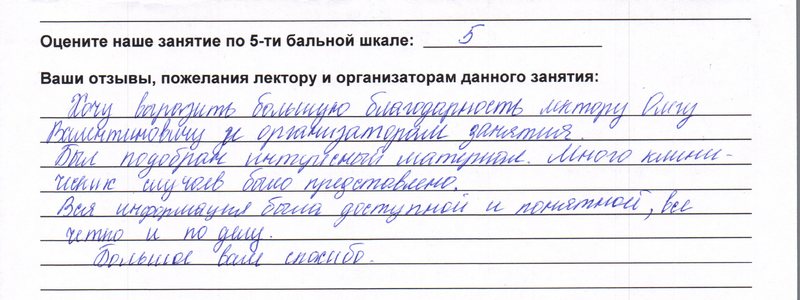 Оцените наше занятие по 5-ти бальной шкале: 5
Ваши отзывы, пожелания лектору и организаторам данного занятия:
Хочу выразить большую благодарность лектору Олегу
Валентиновичу и организаторам занятия.
Был подобран интересный материал. Много клини-
ческих случаев было представлено.
Вся информация была доступной и понятной, все
четко и по делу.
Большое вам спасибо.